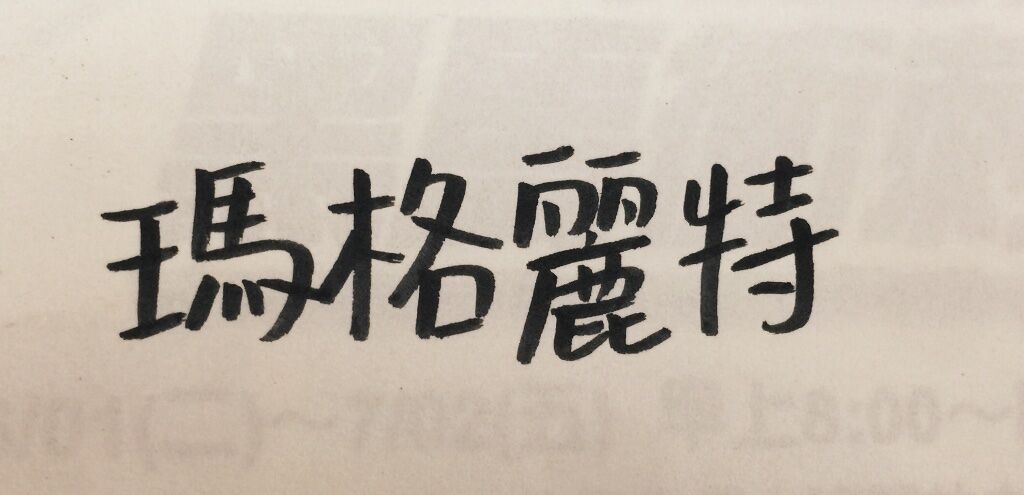 瑪格麗特